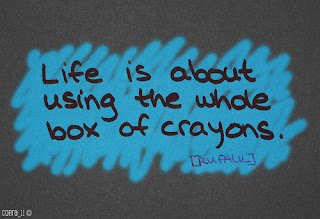 Life is about
using the whole
box of crayons.
[RUPAUL]